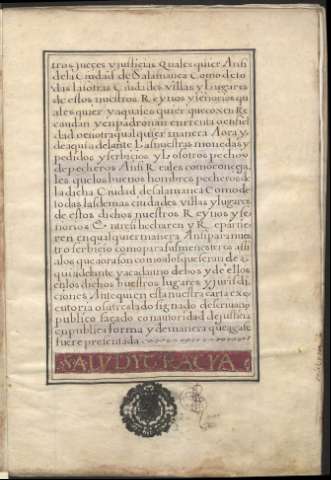 tros jueces y justicias quales quier Ansi
de la Ciudad de Salamanca Como de to
das las otras Ciudades villas y lugares
de estos nuestros Reynos y señorios qu
ales quier y a quales quier que cojen Re
caudan y enpadronan en renta o en fiel
dad o en otra qualquier manera Aora y
de aqui adelante Las nuestras monedas y
pedidos y serbicios y los otros pechos
de pecheros Ansi Reales como conceja
les que los buenos hombres pecheros de
la dicha Ciudad de salamanca Como de
todas las demas ciudades villas y lugares
de estos dichos nuestros Reynos y se
norios Entre si hecharen y Repartie
ren en qualquier manera Ansi para nu
tro serbicio como para sus menesteros assi
a los que aora son como a los que seran de a
qui adelante y a cada uno de bos y de ellos
en los dichos buestros lugares y jurisdi
ciones Ante quien esta nuestra carta exe
cutoria o su treslado signado de escriuano
publico sacado con autoridad de justicia
en publica forma y de manera que haga fe
fuere presentada
SALVD Y GRACYA